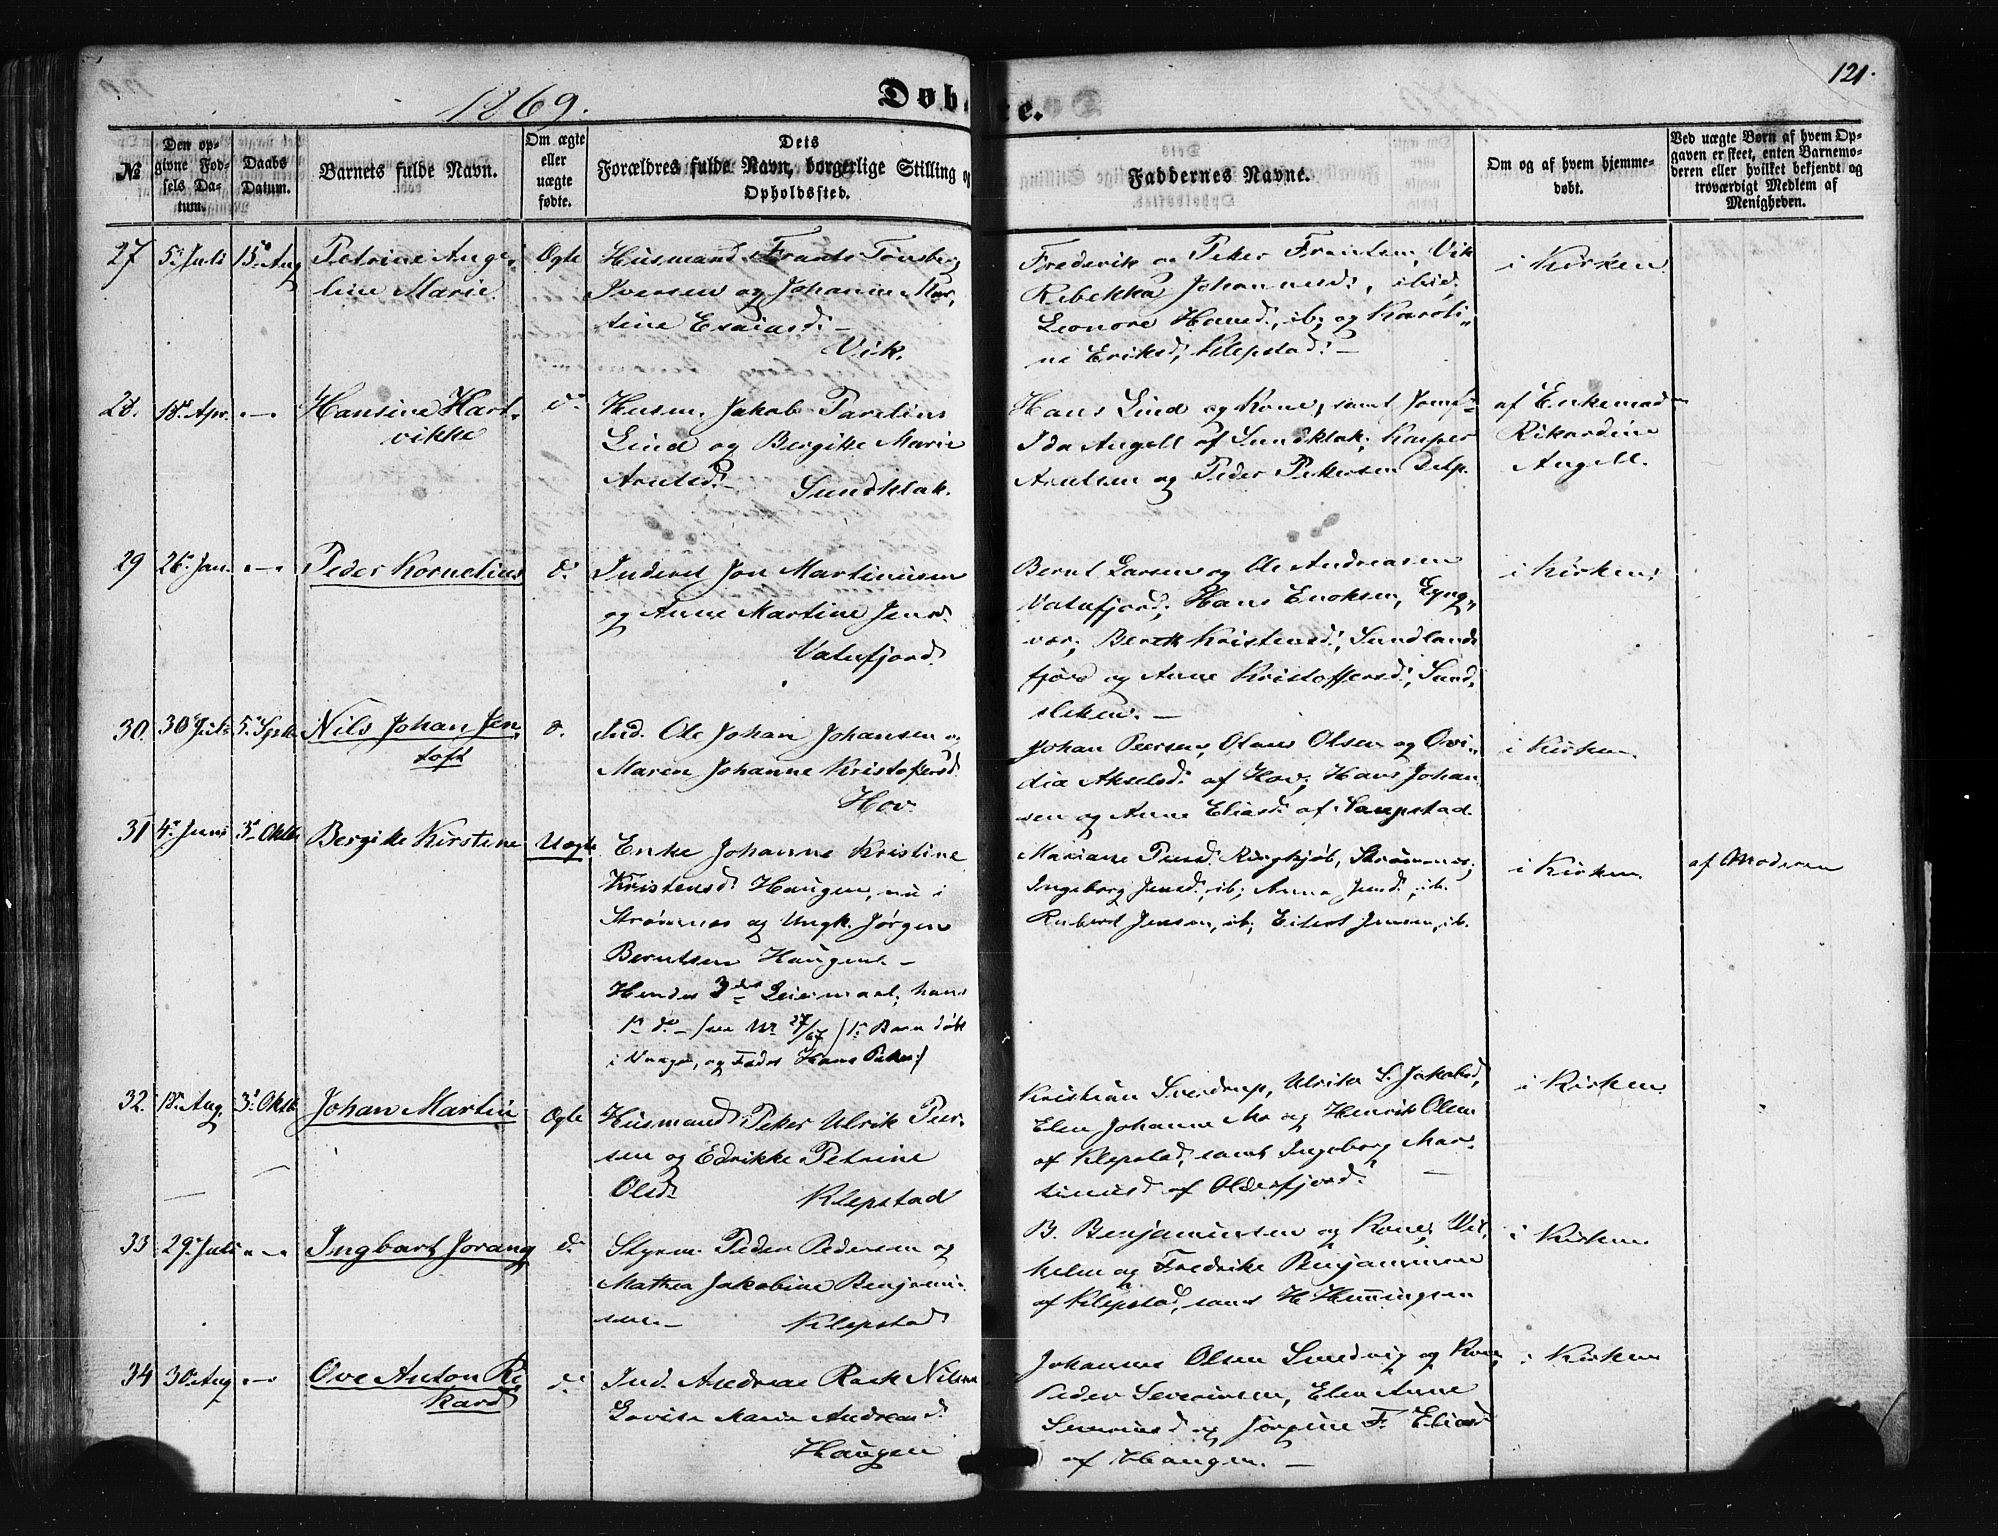 1869.
Døbte.
121.
№
Den opgivne Fødsels Datum.
Daabs Datum.
Barnets fulde Navn.
Om ægte eller uægte fødte.
Dets Forældres fulde Navn, borgerlige Stilling og Opholdssted.
Faddernes Navne.
Om og af hvem hjemmedøbt.
Ved uægte Børn af hvem Opgaven er skeet, enten Barnemoderen eller hvilket bekjendt og troværdigt Medlem af Menigheden.
27 5' Juli 15' Aug Petrine Ange-
line Marie
Ægte
Husmand Frants Tønsberg
Iversen og Johanne Mar-
tine Esaiasd. –
Vik.
Frederik og Peter Frantsen, Vik
Rebekka Johannesd., ibid.
Leonore Hansd., ib; og Karoli-
ne Eriksd., Klepstad. –
i Kirken
28. 18' Apr. –"– Hansine Hart-
vikke
do
Husm. Jakob Parelius
Lind og Bergitte Marie
Arntsd. – Sundklak.
Hans Lind og Kone, samt Jomf.
Ida Angell af Sundklak; Kasper
Arntsen og Peder Petersen Delp.
af Enkemad.
Rikardine
Angell.
29 26' Jan. –"– Peder Kornelius
do
Inderst Jon Martinusen
og Anne Martine Jensd.
Vatnfjord.
Bernt Larsen og Ole Andreasen
Vatnfjord; Hans Enoksen, Lyng-
vær; Berth Kristensd., Sundlands
fjord og Anne Kristoffersd., Sund-
sleken. –
i Kirken
30. 30' Juli 5' Sept. Nils Johan Jen-
toft
d.
Ind. Ole Johan Johansen og
Maren Johanne Kristofersd.
Hov.
Johan Peersen, Olaus Olsen og Ovi-
dia Akselsd. af Hov; Hans Johan-
sen og Anne Eliasd. af Laupstad.
i Kirken
31 4' Juni 3' Oktbr Bergitte Kirstine
Uægte
Enke Johanne Kristine
Kristensd. Haugen, nu i
Strømnes og Ungk. Jørgen
Berntsen Haugen. –
Hendes 3die Leiermaal; hans
1ste do – (see № 27/67) 1ste Barn døbt
i Vaagen, og Fader Hans Peter)
Mariane Peersd. Ringkjøb, Strømnes;
Ingeborg Jensd., ib; Anna Jensd., ib.
Rubert Jensen, ib; Eilert Jensen, ib.
i Kirken
af Moderen
32. 18' Aug. 3' Oktb. Johan Martin
Ægte
Husmand Peter Ulrik Peer-
sen og Edrikke Petrine
Olsd. Klepstad
Kristian Sverdrup, Ulrika S. Jakobsd,
Elen Johanne Mo og Henrik Olsen
af Klepstad, samt Ingeborg Mar-
tinusd. af Olderfjord. –
i Kirken
33 29' Juli –"– Ingbart Jorang
do
Styrm. Peder Pedersen og
Mathea Jakobine Benjami-
sen. – Klepstad
B. Benjaminsen og Kone, Wil-
helm og Fredrike Benjaminsen
af Klepstad, samt H. Henningsen
i Kirken
34 30' Aug –"– Ove Anton Ri-
kard
do
Ind. Andreas Rask Nilsen
Lovise Marie Andreasd.
Haugen
Johannes Olsen Sundvig og Kone
Peder Severinsen, Elen Anne
Severinsd. og Jørgine F. Eliasd.
af Haugen. –
i Kirken